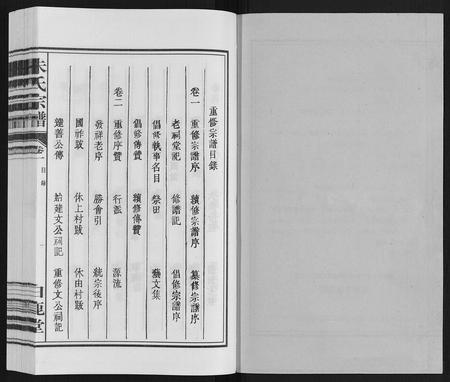 重修宗譜目錄
卷一 重修宗譜序 續修宗譜序 纂修宗譜序
老祠堂記 修譜記 倡修宗譜序
倡修執事名目 祭田 藝文集
倡修傳贊 續修傳贊
卷二 重修序贊 行派 源流
發祥老序 勝會引 統宗後序
國祚跋 休上村跋 休由村跋
達善公傳 始建文公祠記 重修文公祠記
朱氏宗譜
卷一
目錄